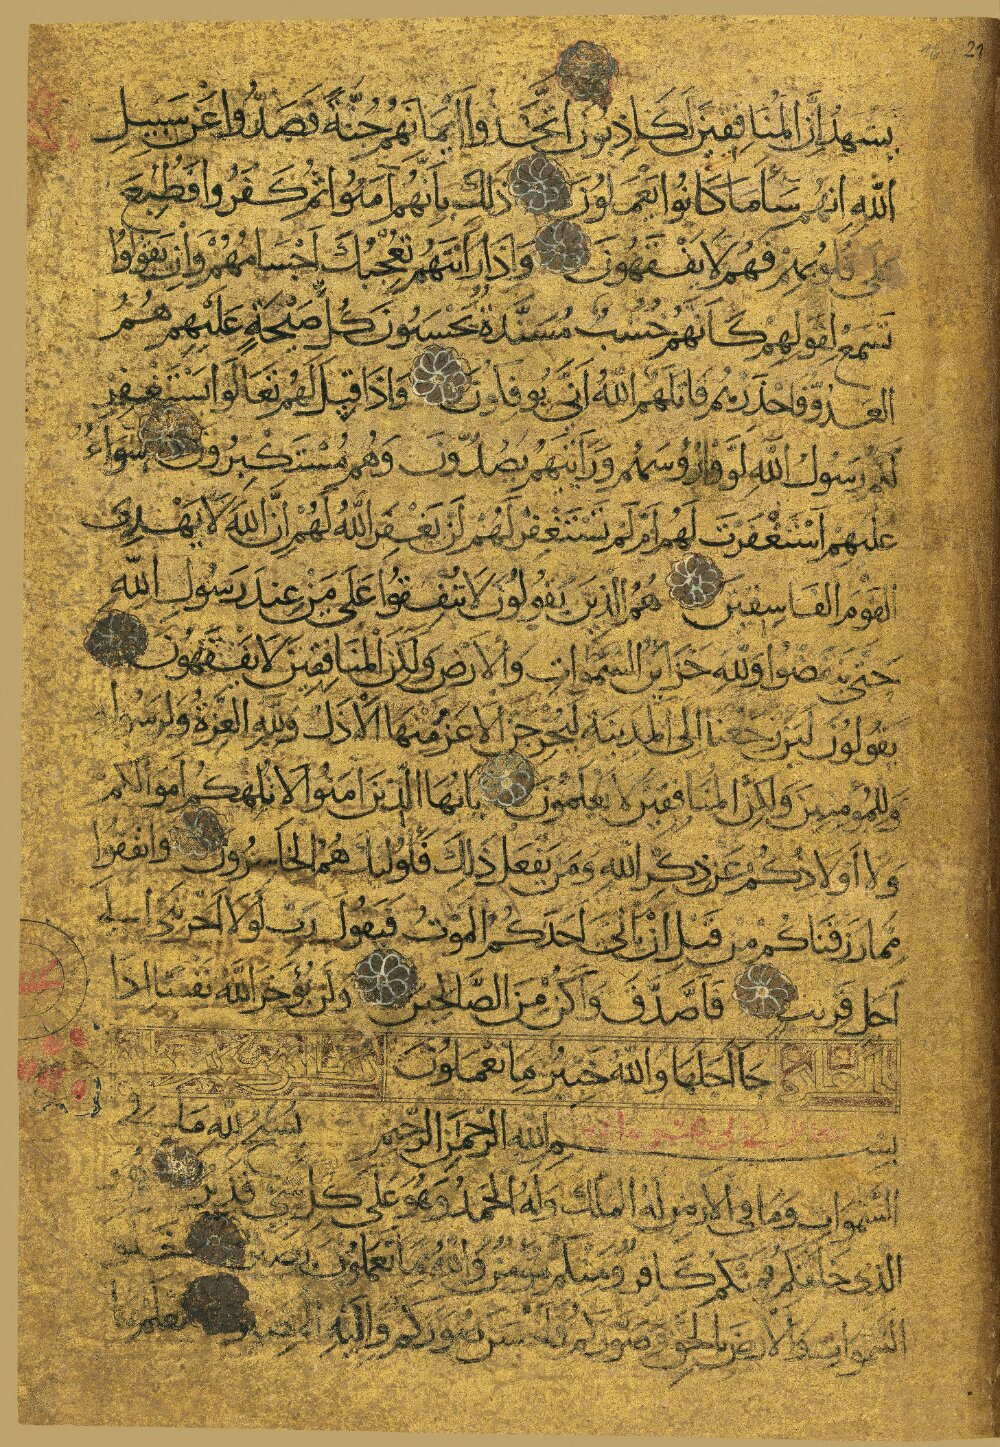 21
يشهد إن المنافقين لكاذبون اتخذوا أيمانهم جنة فصدوا عن سبيل
الله إنهم ساء ما كانوا يعملون ذلك بأنهم آمنوا ثم كفروا فطبع
على قلوبهم فهم لا يفقهون وإذا رأيتهم تعجبك أجسامهم وإن يقولوا
تسمع لقولهم كأنهم خشب مسندة يحسبون كل صيحة عليهم هم
العدو فاحذرهم قاتلهم الله أنى يؤفكون وإذا قيل لهم تعالوا يستغفر
لكم رسول الله لووا رؤوسهم ورأيتهم يصدون وهم مستكبرون سواء
عليهم أستغفرت لهم أم لم تستغفر لهم لن يغفر الله لهم إن الله لا يهدي
القوم الفاسقين هم الذين يقولون لا تنفقوا على من عند رسول الله
حتى ينفضوا ولله خزائن السموات والأرض ولكن المنافقين لا يفقهون
يقولون لئن رجعنا إلى المدينة ليخرجن الأعز منها الأذل ولله العزة ولرسوله
وللمؤمنين ولكن المنافقين لا يعلمون يا أيها الذين آمنوا لا تلهكم أموالكم
ولا أولادكم عن ذكر الله ومن يفعل ذلك فأولئك هم الخاسرون وأنفقوا
مما رزقناكم من قبل أن يأتي أحدكم الموت فيقول رب لولا أخرتني إلى
أجل قريب فأصدق وأكن من الصالحين ولن يؤخر الله نفسا إذا
جاء أجلها والله خبير بما تعملون
بسم الله الرحمن الرحيم يسبح لله ما في
السموات وما في الأرض له الملك وله الحمد وهو على كل شيء قدير هو
الذي خلقكم فمنكم كافر ومنكم مؤمن والله بما تعملون بصير خلق
السموات والأرض بالحق وصوركم فأحسن صوركم وإليه المصير يعلم ما